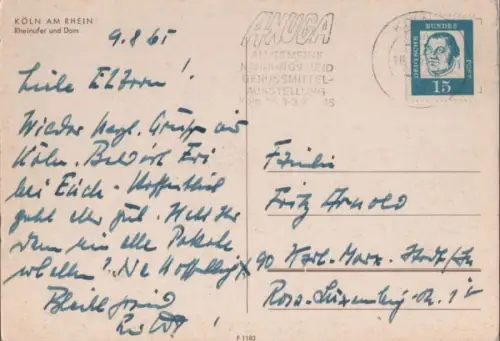 KÖLN AM RHEIN
Rheinufer und Dom
9.8.65
Liebe Eltern!
Wieder herzl. Grüße aus
Köln. Bald ist Eri
bei Euch. Hoffentlich
geht alles gut. Habt Ihr
denn nun alle Pakete
erhalten? Die
Bleibt gesund
ANUGA
ALLGEMEINE
NAHRUNGS- UND
GENUSSMITTEL-
AUSSTELLUNG
DEUTSCHE BUNDESPOST
15
Familie
Fritz Arnold
90 Karl-Marx-Stadt/Sa
Rosa-Luxemburg-Str. 1
F 1103